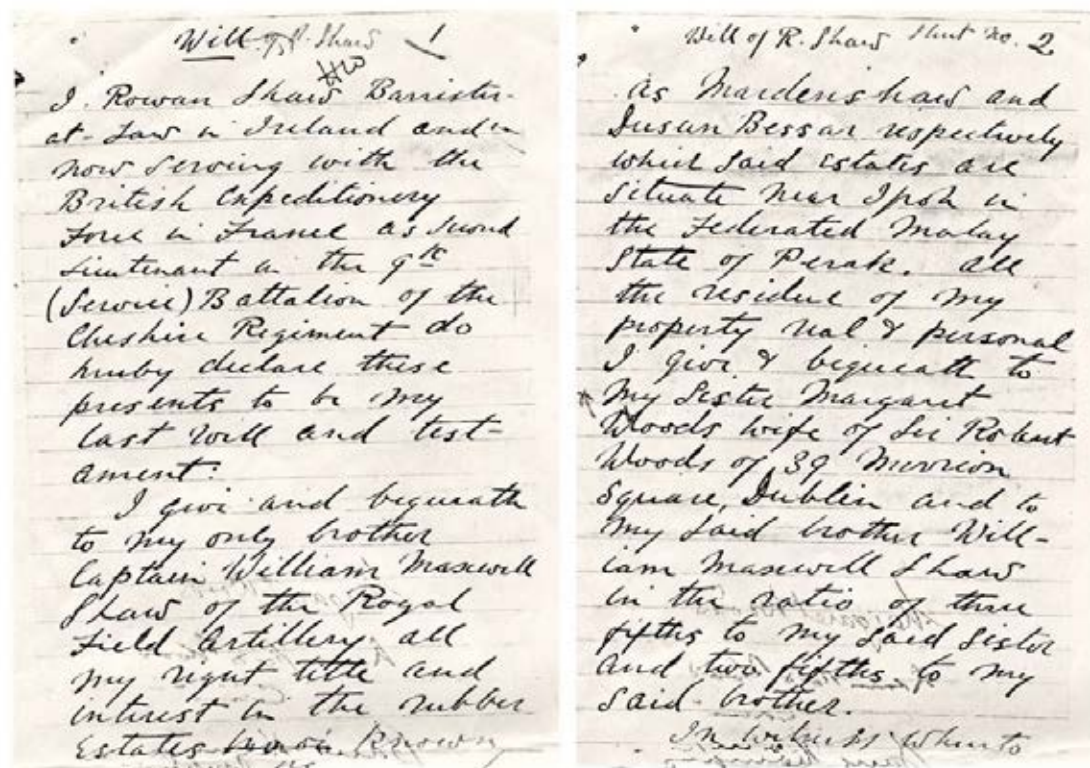 Will of R. Shaw 1
I. Rowan Shaw Barrister-
at-Law in Ireland and
now serving with the
British Expeditionery
Force in France as second
Lieutenant in the 9th
(Service) Battalion of the
Cheshire Regiment do
hereby declare these
presents to be my
last will and test-
ament:
I give and bequeath
to my only brother
Captain William Maxwell
Shaw of the Royal
Field Artillery all
my right title and
interest in the rubber
Estates known
Will of R. Shaw Sheet No. 2
as Mardenshaw and
Susan Bessar respectively
which said estates are
situate near Ipoh in
the Federated Malay
State of Perak. All
the residue of my
property real & personal
I give & bequeath to
my Sister Margaret
Woods wife of Sir Robert
Woods of 39 Merrion
Square, Dublin and to
my said brother Will-
iam Maxwell Shaw
in the ratio of three
fifths to my said sister
and two fifths to my
said brother.
In witness whereto